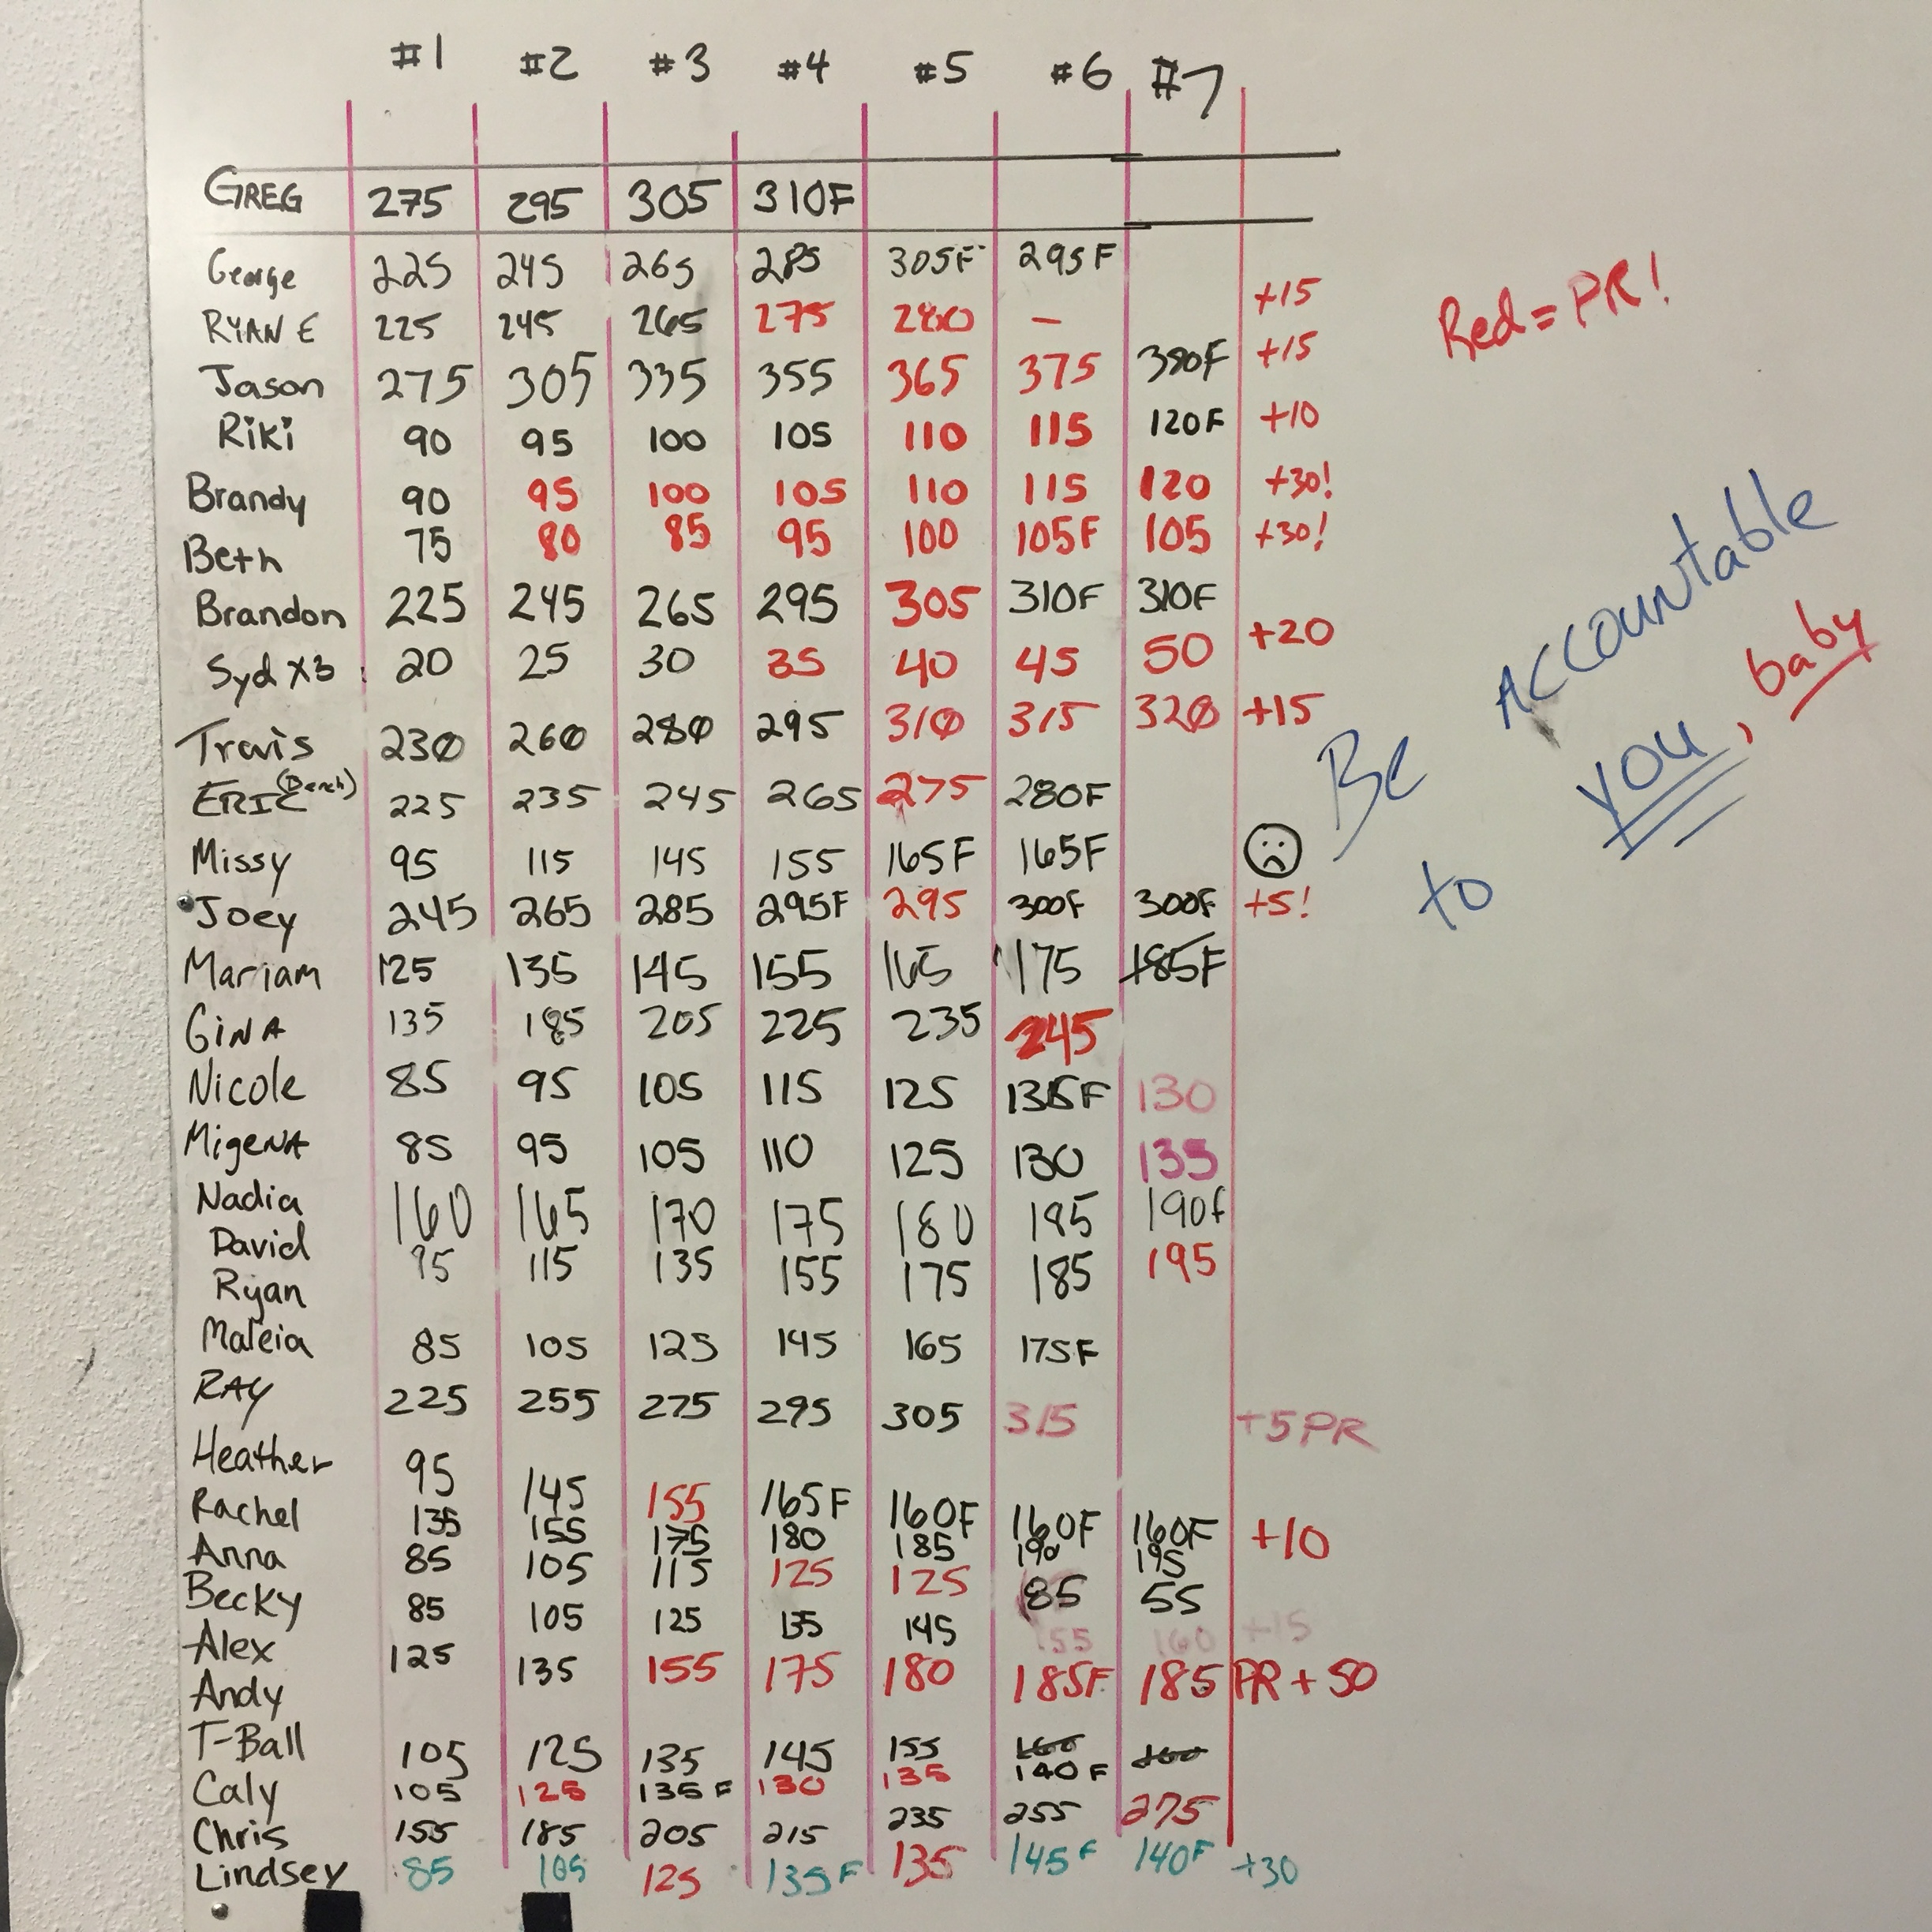 #1 #2 #3 #4 #5 #6 #7
GREG 275 295 305 310F
George 225 245 265 285 305F 295F
RYAN E 225 245 265 275 280 - +15
Jason 275 305 335 355 365 375 380F +15
Riki 90 95 100 105 110 115 120F +10
Brandy 90 95 100 105 110 115 120 +30!
Beth 75 80 85 95 100 105F 105 +30!
Brandon 225 245 265 295 305 310F 310F
Syd x3 20 25 30 35 40 45 50 +20
Travis 230 260 280 295 310 315 320 +15
ERIC (Bench) 225 235 245 265 275 280F
Missy 95 115 145 155 165F 165F
Joey 245 265 285 295F 295 300F 300F +5!
Mariam 125 135 145 155 165 175 185F
GINA 135 185 205 225 235 245
Nicole 85 95 105 115 125 135F 130
MigeNA 85 95 105 110 125 130 135
Nadia
David 160 165 170 175 180 185 190F
Ryan 95 115 135 155 175 185 195
Maleia 85 105 125 145 165 175F
RAY 225 255 275 295 305 315 +5 PR
Heather 95 145 155 165F 160F 160F 160F +10
Rachel 135 155 175 180 185 190 195
Anna 85 105 115 125 125 85 55
Becky 85 105 125 135 145 155 160 +15
Alex 125 135 155 175 180 185F 185 PR + 50
Andy
T-Ball 105 125 135 145 155 160 160
Caly 105 125 135F 130 135 140F
Chris 155 185 205 215 235 255 275
Lindsey 85 105 125 135F 135 145F 140F +30
Red = PR!
Be ACCountable
to you, baby